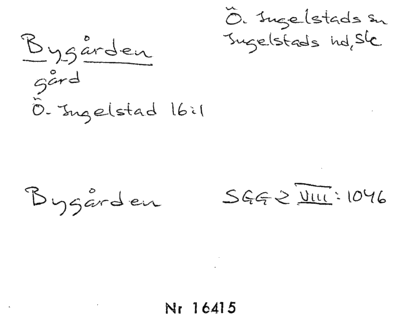 Bygården
Ö. Ingelstads sn
Ingelstads hd, Sk
gård
Ö. Ingelstad 16:1
Bygården
SGG 2 VIII:1046
Nr 16415